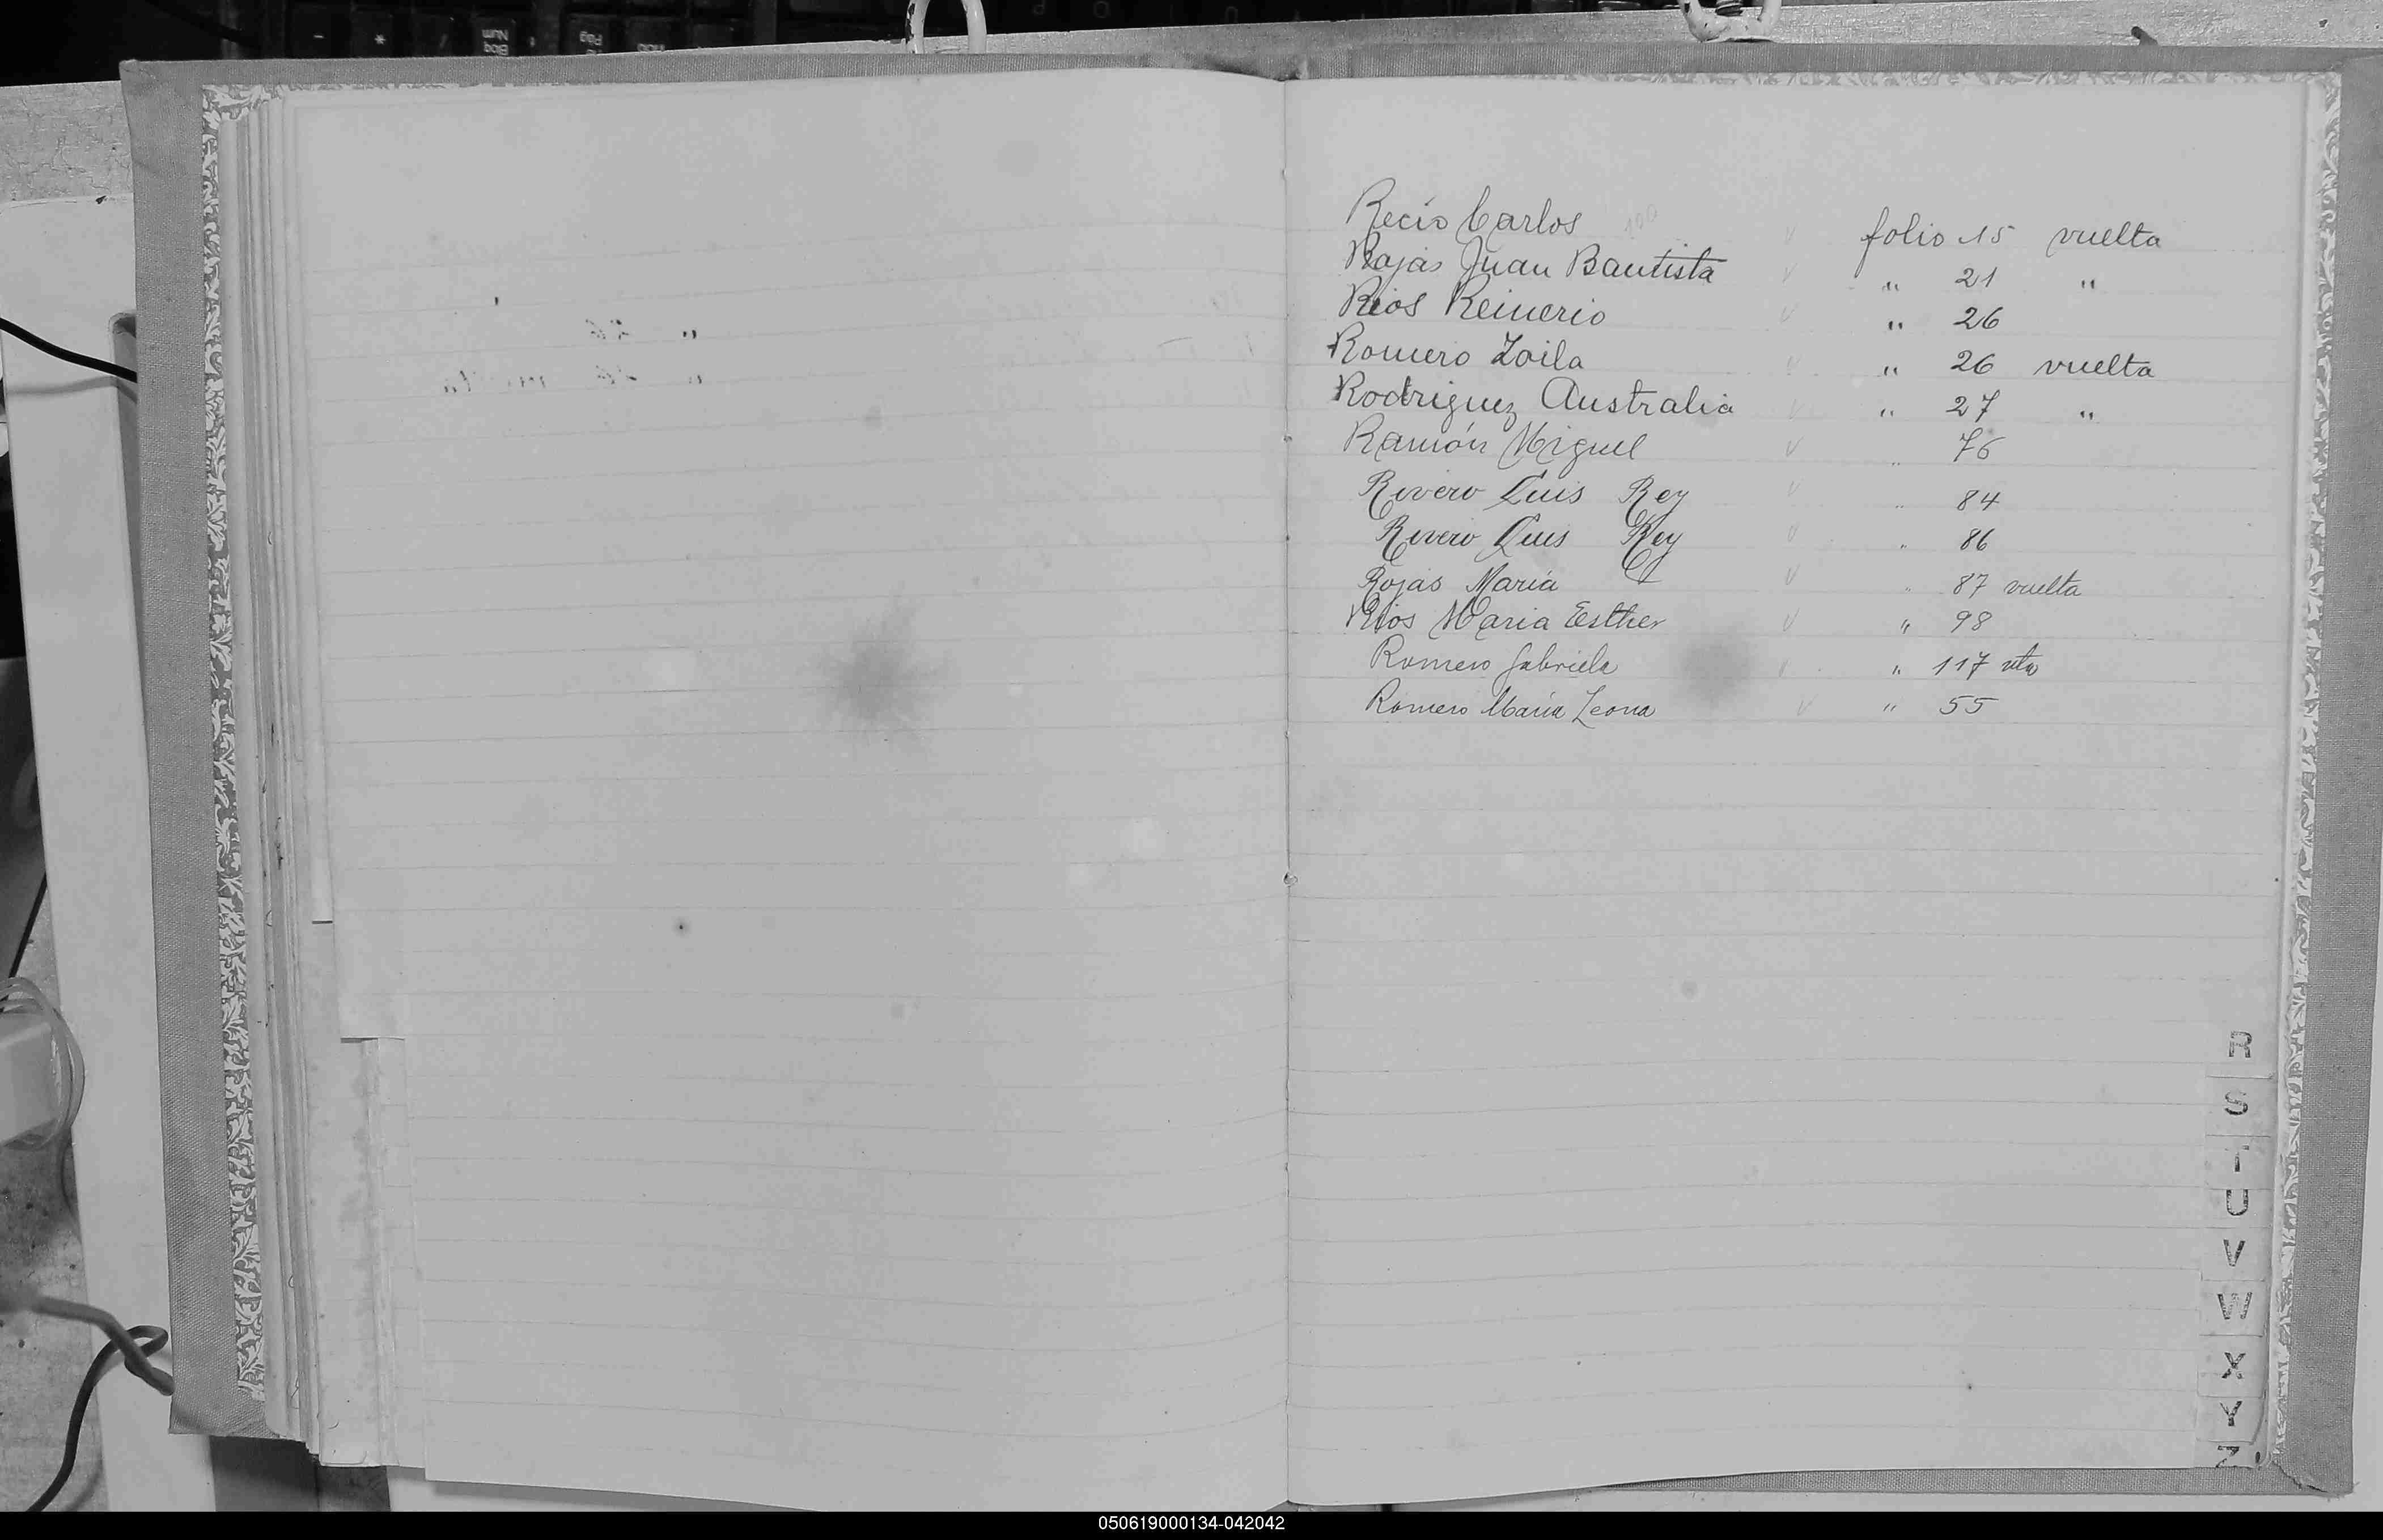 Recio Carlos folio 15 vuelta
Rojas Juan Bautista " 21 "
Rios Reinerio " 26
Romero Zoila " 26 vuelta
Rodriguez Australia " 27 "
Ramón Miguel " 76
Rivero Luis Rey " 84
Rivero Luis Rey " 86
Rojas Maria " 87 vuelta
Rios Maria Esther " 98
Romero Gabriela " 117 vta
Romero María Leona " 55
R
S
T
U
V
W
X
Y
Z
050619000134-042042